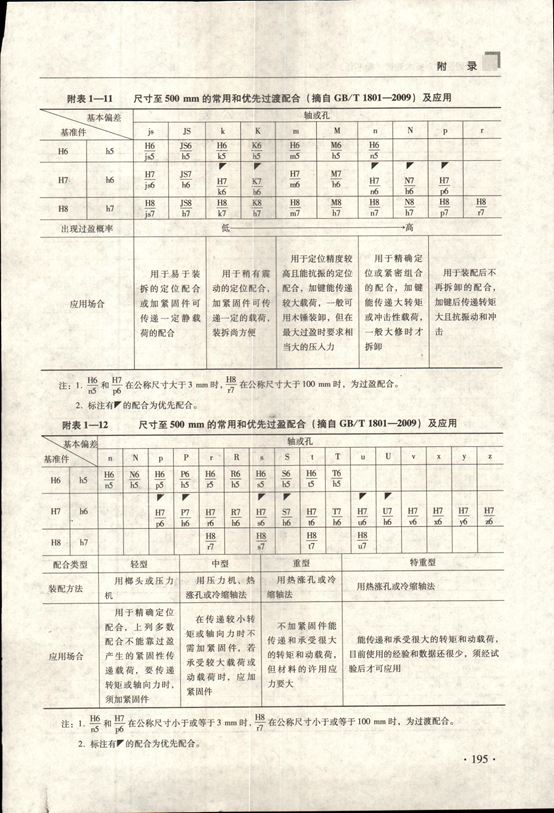 附 录
附表1—11 尺寸至500 mm的常用和优先过渡配合（摘自GB/T 1801—2009）及应用
基本偏差 轴或孔
基准件 js JS k K m M n N p r
H6 h5 H6/js5 JS6/h5 H6/k5 K6/h5 H6/m5 M6/h5 H6/n5
H7 h6 H7/js6 JS7/h6 ◤H7/k6 ◤K7/h6 H7/m6 M7/h6 ◤H7/n6 ◤N7/h6 ◤H7/p6
H8 h7 H8/js7 JS8/h7 H8/k7 K8/h7 H8/m7 M8/h7 H8/n7 N8/h7 H8/p7 H8/r7
出现过盈概率 低→高
应用场合
用于易于装
拆的定位配合
或加紧固件可
传递一定静载
荷的配合
用于稍有震
动的定位配合，
加紧固件可传
递一定的载荷，
装拆尚方便
用于定位精度较
高且能抗振的定位
配合，加键能传递
较大载荷，一般可
用木锤装卸，但在
最大过盈时要求相
当大的压入力
用于精确定
位或紧密组合
的配合，加键
能传递大转矩
或冲击性载荷，
一般大修时才
拆卸
用于装配后不
再拆卸的配合，
加键后传递转矩
大且抗振动和冲
击
注：1. H6/n5 和 H7/p6 在公称尺寸大于3 mm时，H8/r7 在公称尺寸大于100 mm时，为过盈配合。
2. 标注有◤的配合为优先配合。
附表1—12 尺寸至500 mm的常用和优先过盈配合（摘自GB/T 1801—2009）及应用
基本偏差 轴或孔
基准件 n N p P r R s S t T u U v x y z
H6 h5 H6/n5 N6/h5 H6/p5 P6/h5 H6/r5 R6/h5 H6/s5 S6/h5 H6/t5 T6/h5
H7 h6 ◤H7/p6 ◤P7/h6 H7/r6 R7/h6 ◤H7/s6 ◤S7/h6 H7/t6 T7/h6 ◤H7/u6 ◤U7/h6 H7/v6 H7/x6 H7/y6 H7/z6
H8 h7 H8/r7 H8/s7 H8/t7 H8/u7
配合类型 轻型 中型 重型 特重型
装配方法
用榔头或压力
机
用压力机、热
涨孔或冷缩轴法
用热涨孔或冷
缩轴法
用热涨孔或冷缩轴法
应用场合
用于精确定位
配合，上列多数
配合不能靠过盈
产生的紧固性传
递载荷，要传递
转矩或轴向力时，
须加紧固件
在传递较小转
矩或轴向力时不
需加紧固件，若
承受较大载荷或
动载荷时，应加
紧固件
不加紧固件能
传递和承受很大
的转矩和动载荷，
但材料的许用应
力要大
能传递和承受很大的转矩和动载荷，
目前使用的经验和数据还很少，须经试
验后才可应用
注：1. H6/n5 和 H7/p6 在公称尺寸小于或等于3 mm时，H8/r7 在公称尺寸小于或等于100 mm时，为过渡配合。
2. 标注有◤的配合为优先配合。
·195·